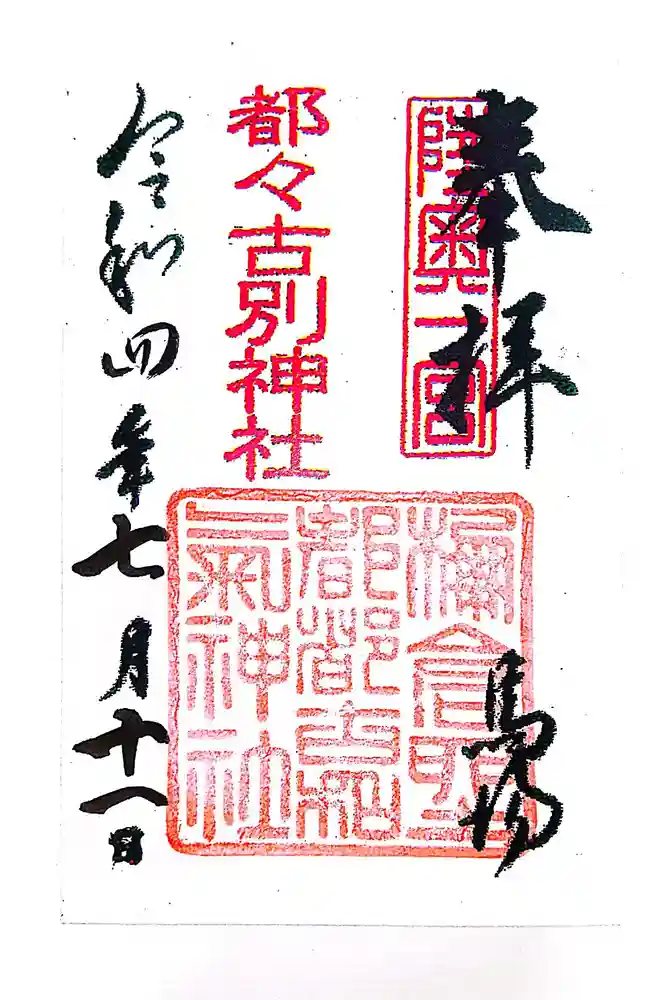 奉拝
陸奥一宮
馬場
都々古別神社
棚倉
都都古和
氣神社
令和四年七月十一日